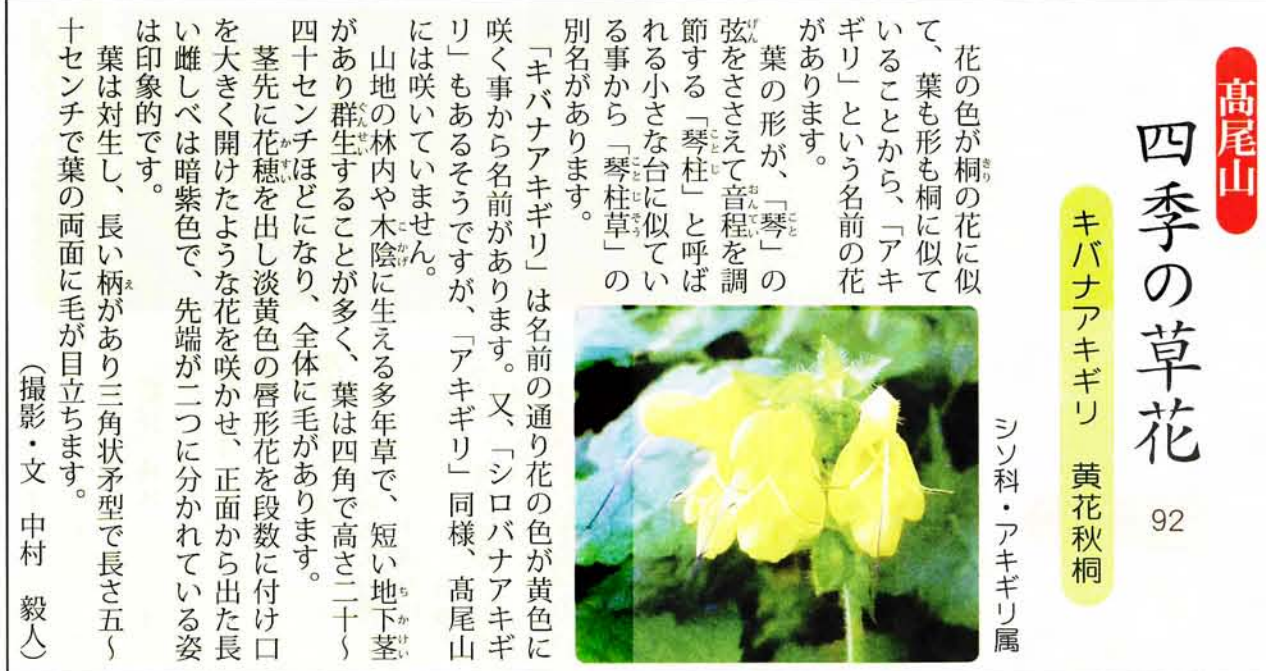 髙尾山
四季の草花 92
キバナアキギリ 黄花秋桐
シソ科・アキギリ属
花の色が桐の花に似
て、葉も形も桐に似て
いることから、「アキ
ギリ」という名前の花
があります。
葉の形が、「琴」の
弦をささえて音程を調
節する「琴柱」と呼ば
れる小さな台に似てい
る事から「琴柱草」の
別名があります。
「キバナアキギリ」は名前の通り花の色が黄色に
咲く事から名前があります。又、「シロバナアキギ
リ」もあるそうですが、「アキギリ」同様、髙尾山
には咲いていません。
山地の林内や木陰に生える多年草で、短い地下茎
があり群生することが多く、葉は四角で高さ二十～
四十センチほどになり、全体に毛があります。
茎先に花穂を出し淡黄色の唇形花を段数に付け口
を大きく開けたような花を咲かせ、正面から出た長
い雌しべは暗紫色で、先端が二つに分かれている姿
は印象的です。
葉は対生し、長い柄があり三角状矛型で長さ五～
十センチで葉の両面に毛が目立ちます。
（撮影・文 中村 毅人）